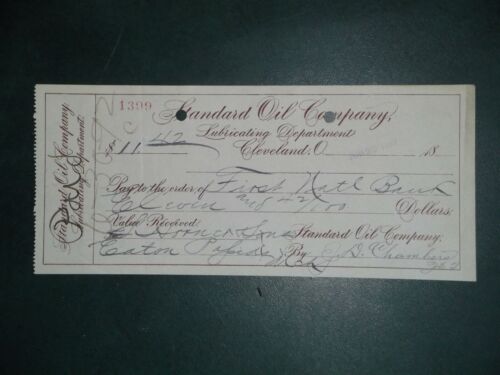 1399
Standard Oil Company,
Lubricating Department
$11.42
Cleveland, O. 18
Pay to the order of First Natl Bank
Eleven and 42/100 Dollars.
Value Received
Standard Oil Company.
Eaton Rapids By J. D. Chambers
Mich
Standard Oil Company,
Lubricating Department.